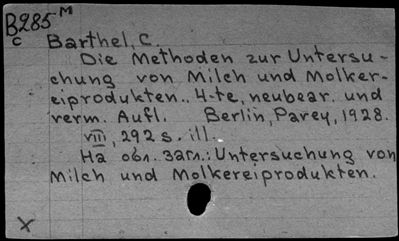 B285 M
c Barthel, C.
Die Methoden zur Untersu-
chung von Milch und Molker-
eiprodukten.. 4-te, neubear. und
verm. Aufl. Berlin, Parey, 1928.
VIII, 292 s. ill.
На обл. загл.: Untersuchung von
Milch und Molkereiprodukten.
X